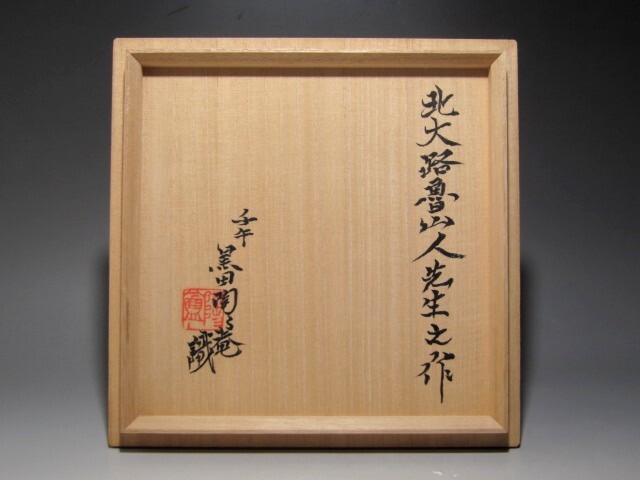 北大路魯山人先生之作
壬午
黒田陶々菴
識